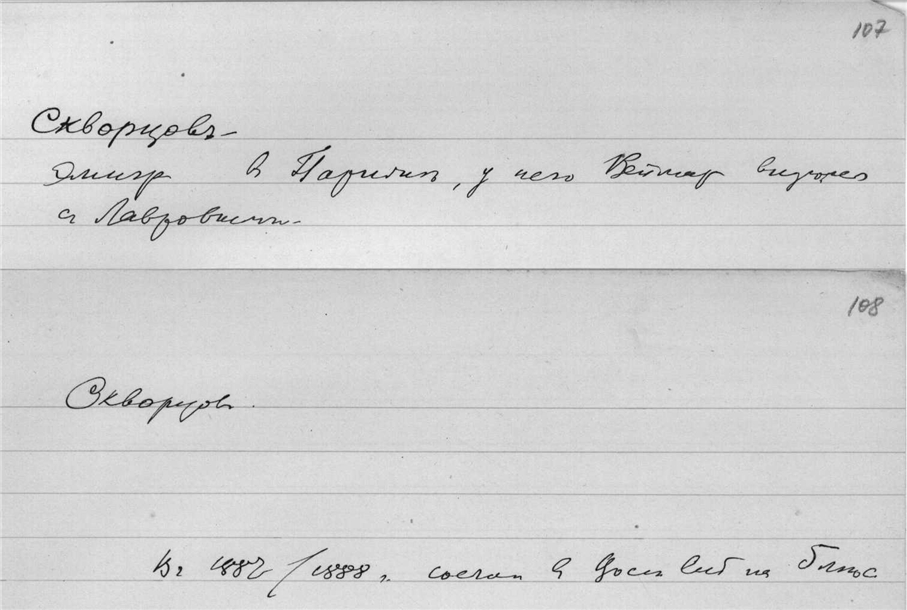 107
Скворцовъ
эмигр въ Парижѣ, у него Веймар виделся
съ Лавровымъ
108
Скворцов
Въ 1887/1888 г. состоял в